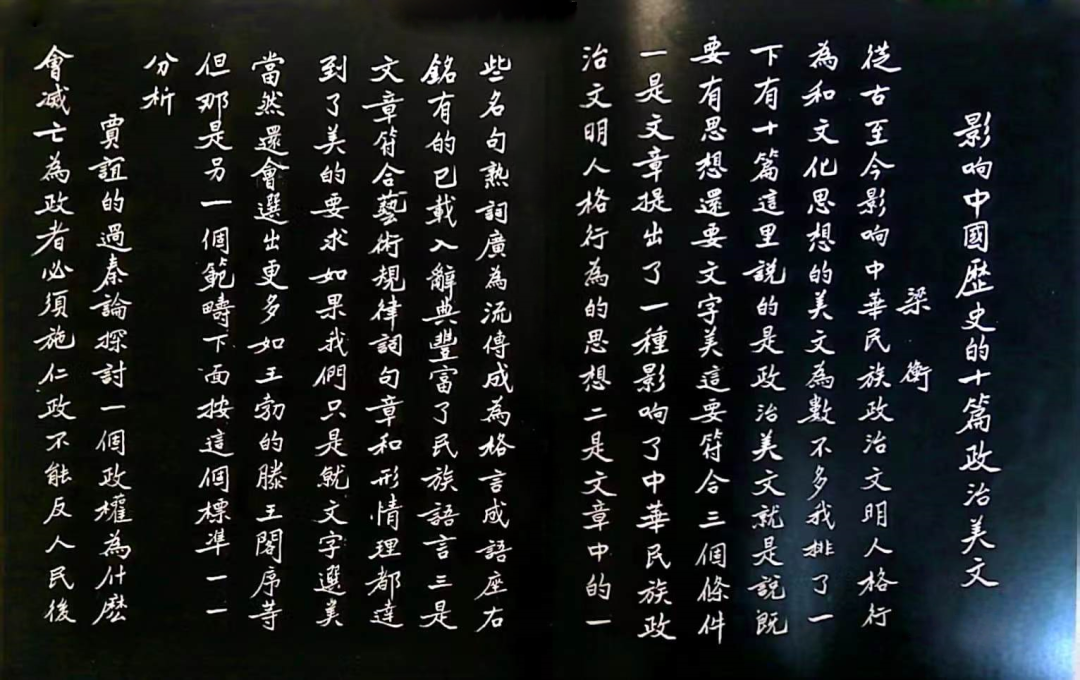 影响中國歷史的十篇政治美文
梁衡
從古至今影响中華民族政治文明人格行
為和文化思想的美文為數不多我排了一
下有十篇這里説的是政治美文就是説既
要有思想還要文字美這要符合三個條件
一是文章提出了一種影响了中華民族政
治文明人格行為的思想二是文章中的一
些名句熟詞廣為流傳成為格言成語座右
銘有的已載入辭典豐富了民族語言三是
文章符合藝術規律詞句章和形情理都達
到了美的要求如果我們只是就文字選美
當然還會選出更多如王勃的滕王閣序等
但那是另一個範疇下面按這個標準一一
分析
賈誼的過秦論探討一個政權為什麽
會滅亡為政者必須施仁政不能反人民後